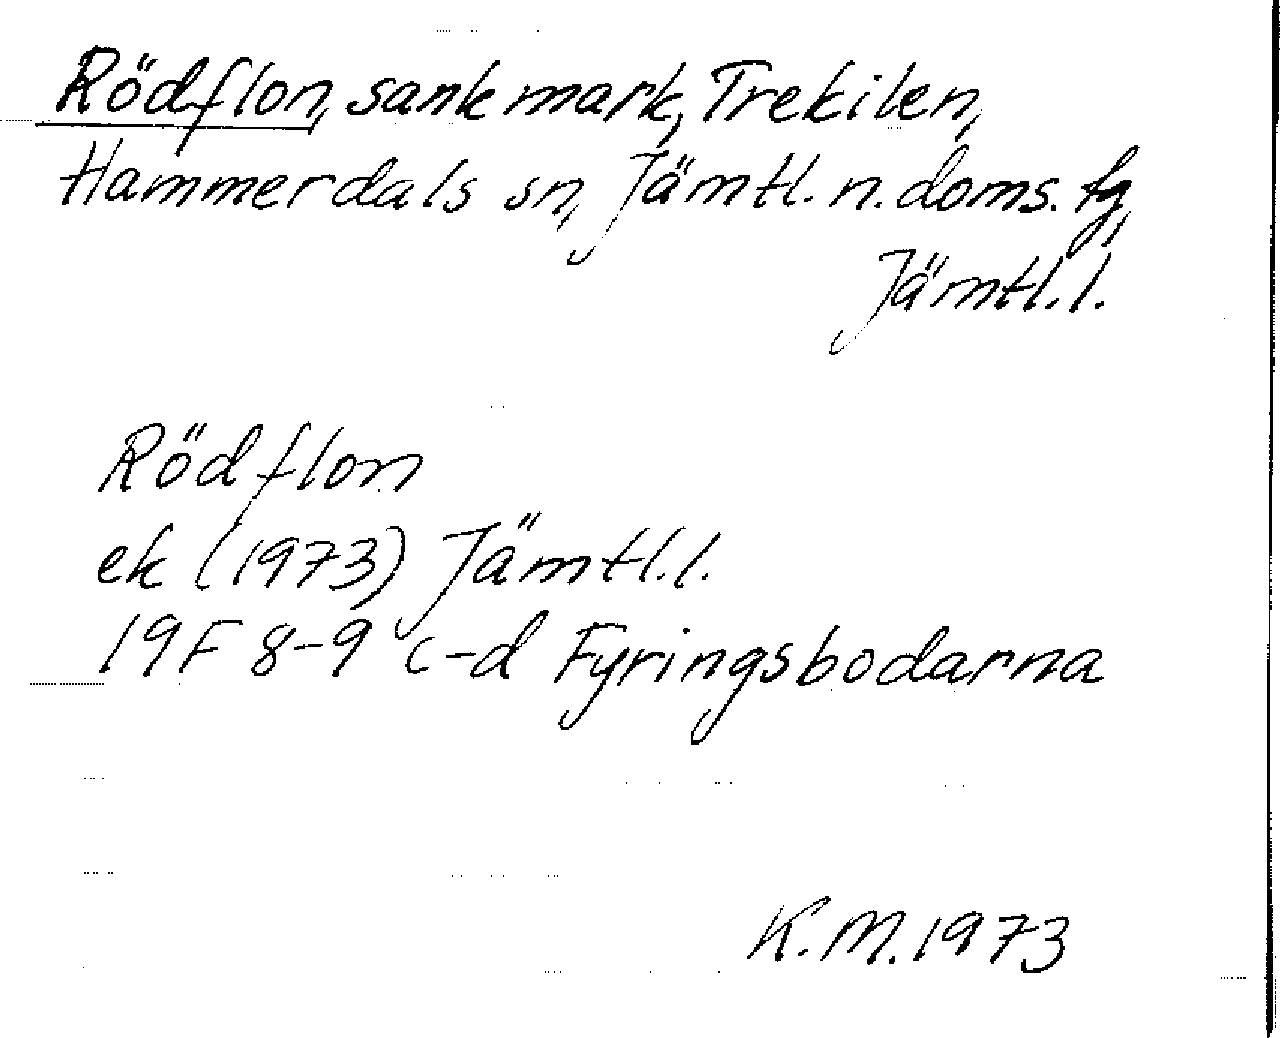 Rödflon, sank mark, Trekilen,
Hammerdals sn, Jämtl. n. doms. tg,
Jämtl. l.
Rödflon
ek (1973) Jämtl. l.
19F 8-9 c-d Fyringsbodarna
K.M. 1973